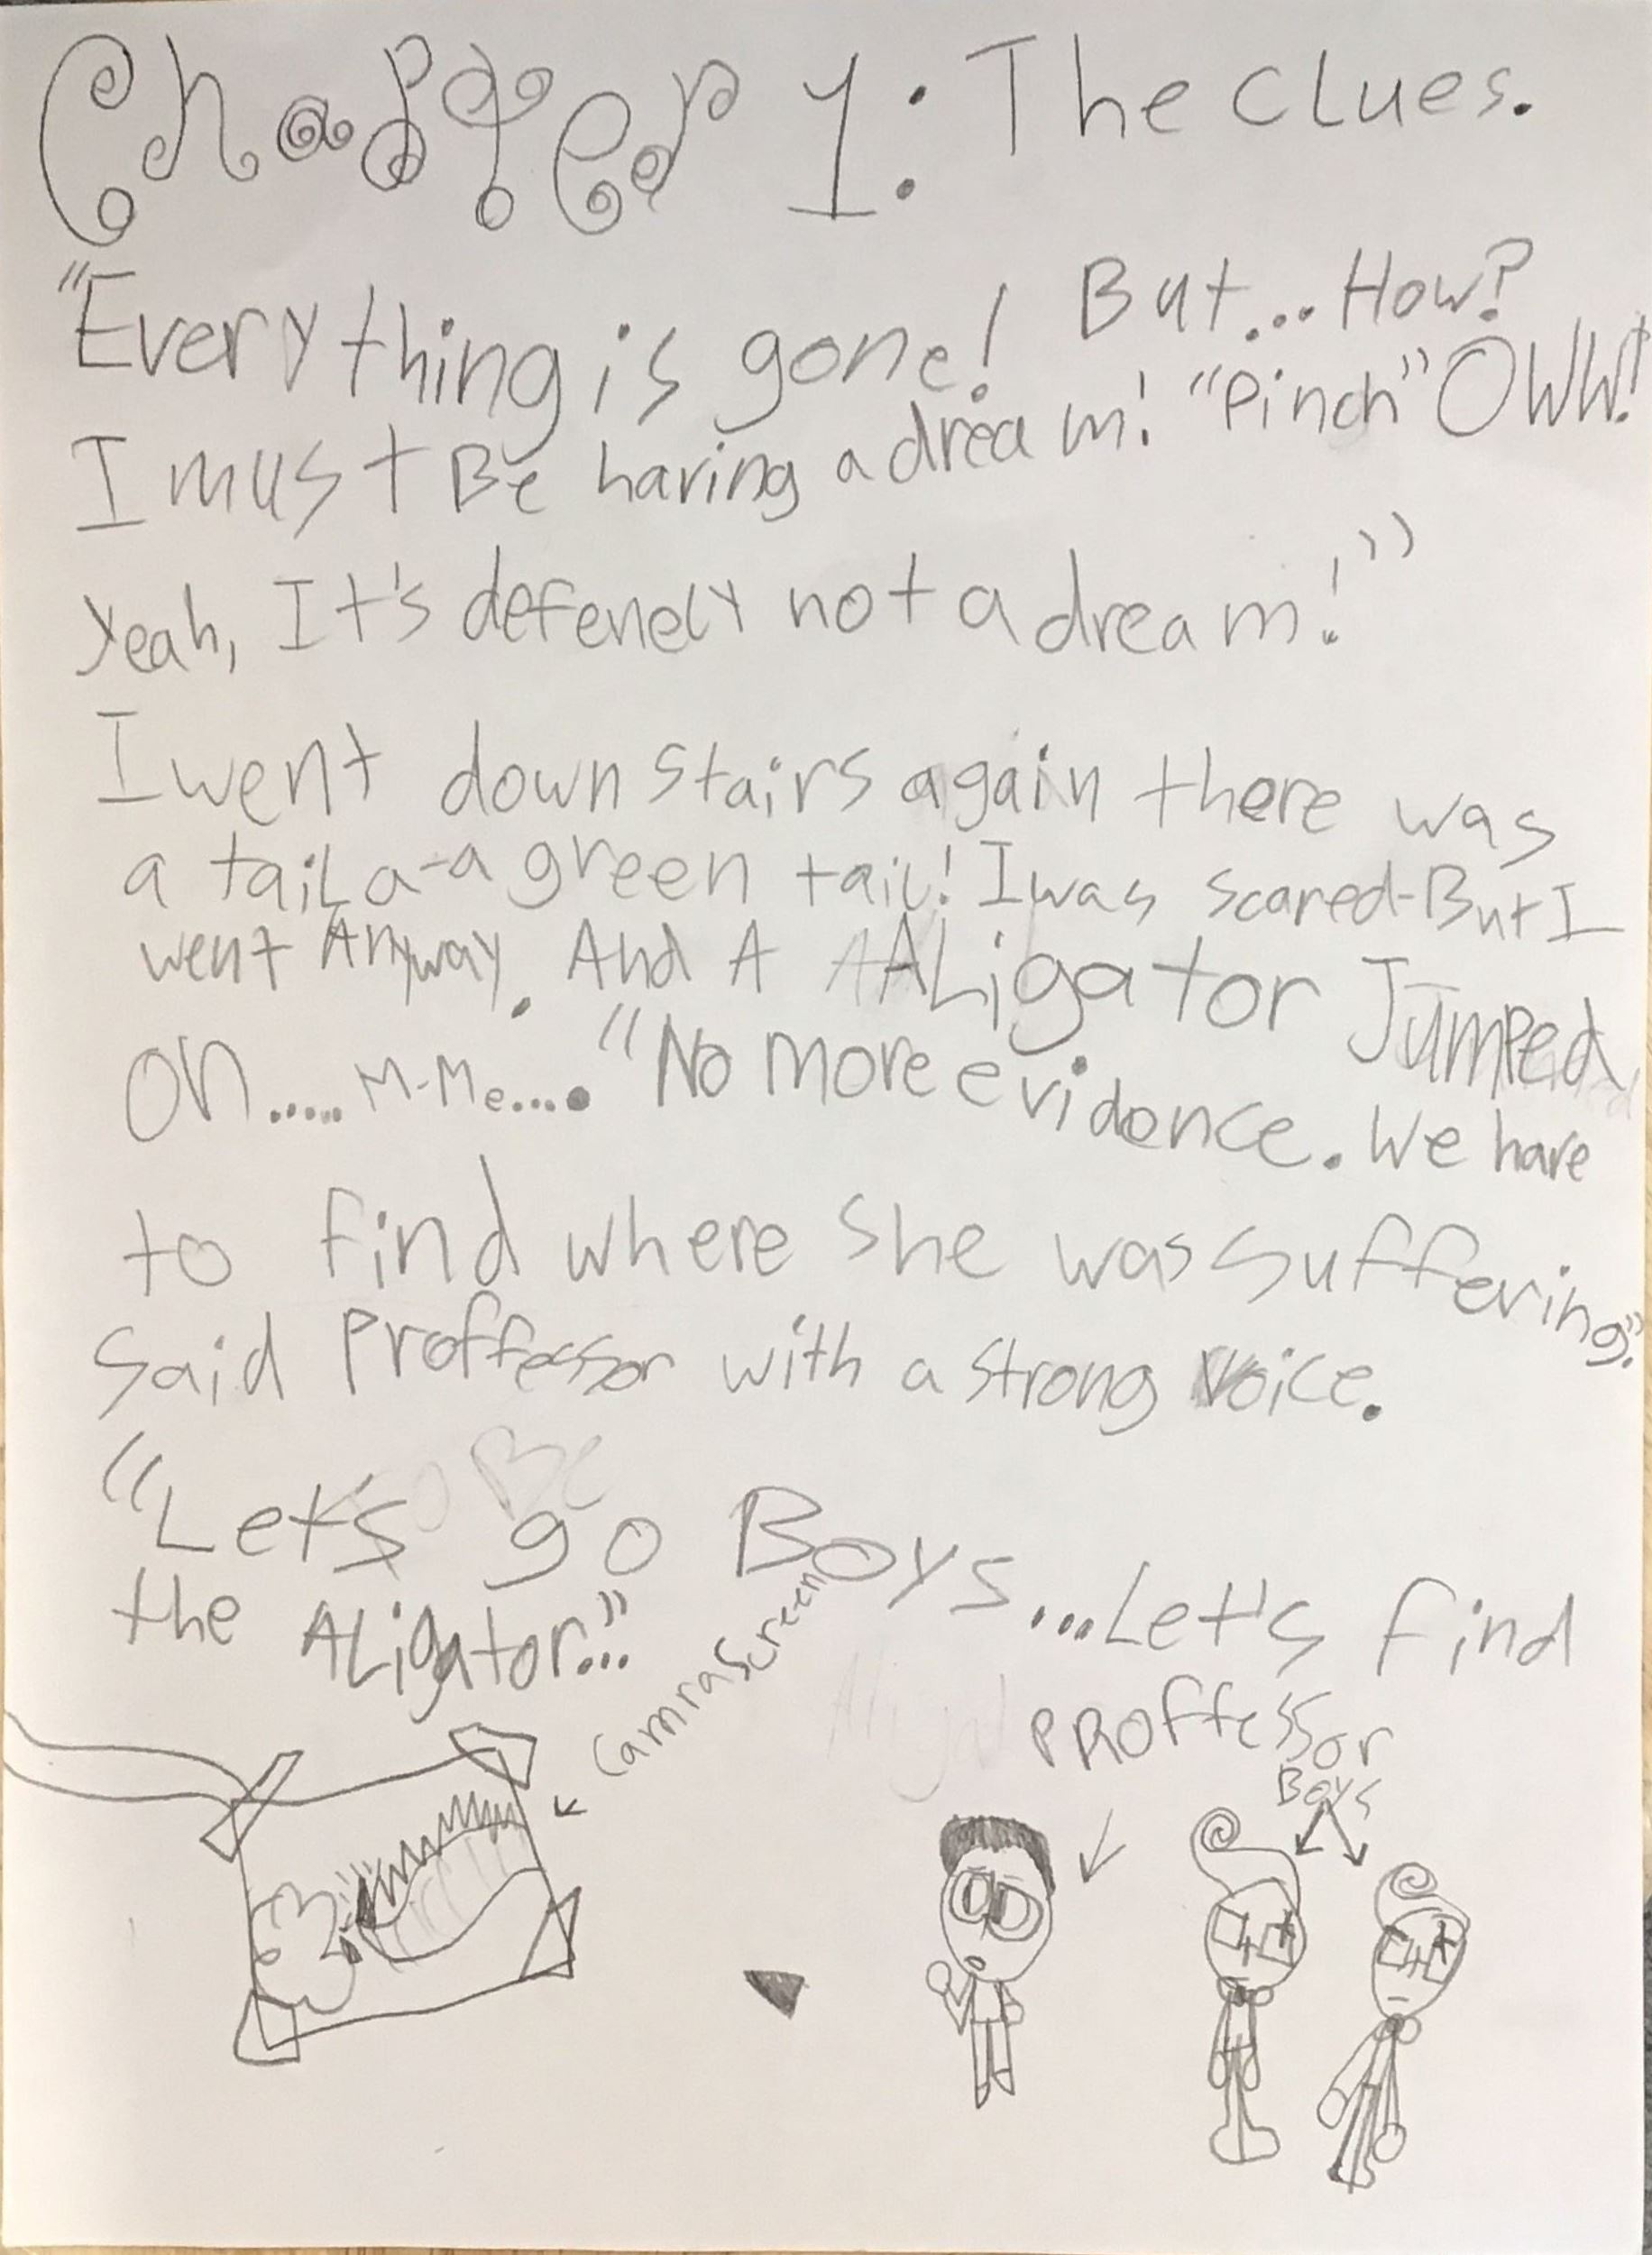 Chapter 1: The Clues.
"Everything is gone! But... How?
I must Be having a dream! "Pinch" OWW!
Yeah, It's defenely not a dream!"
I went down stairs again there was
a tail a-a green tail! I was scared-But I
went Anyway. And A ALigator Jumped
on..... M-Me..... "No more evidence. We have
to find where she was suffering."
said Proffessor with a strong voice.
"Let's go Boys...Let's find
the ALigator..."
Camra Screen
PROffessor
Boys